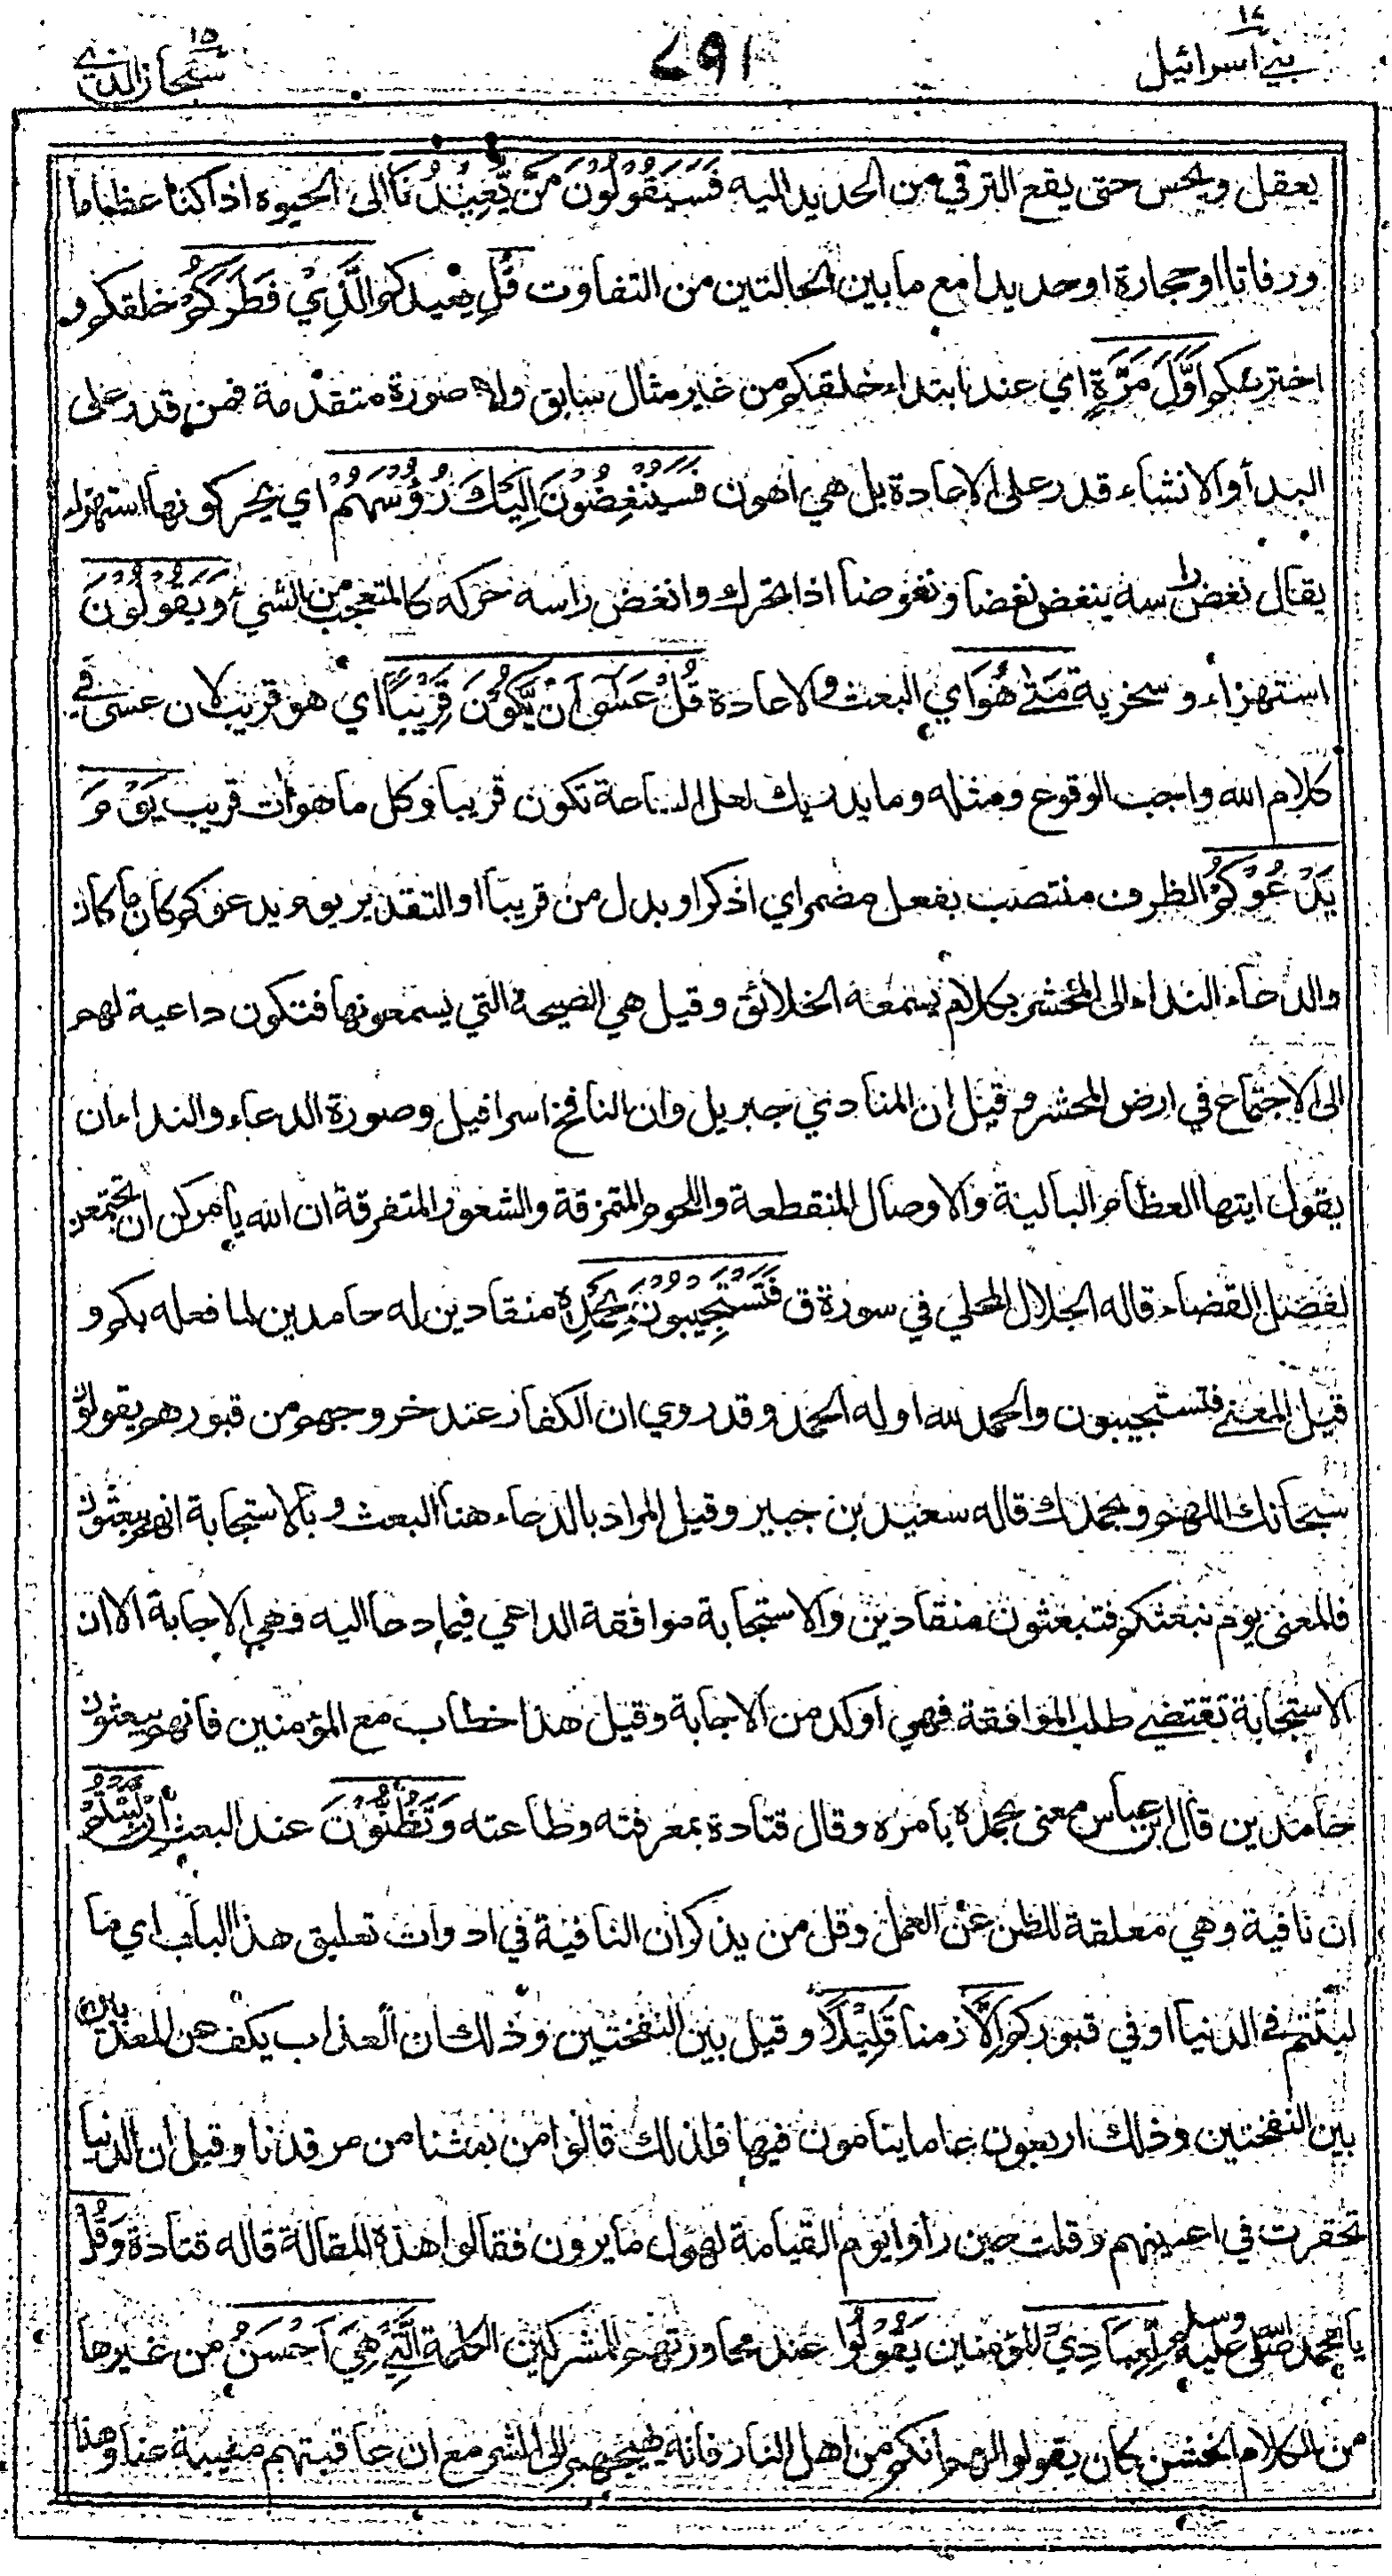 بني اسرائيل ١٧
٧٩١
سبحان الذي ١٥
يعقل ويحس حتى يقع الترقي من الحديد اليه فَسَيَقُوْلُوْنَ مَنْ يُّعِيْدُنَا الى الحيوة اذا كنا عظاما
ورفاتا او حجارة او حديدا مع ما بين الحالتين من التفاوت قُلِ يعيدكم الَّذِيْ فَطَرَكُمْ خلقكم و
اخترعكم اَوَّلَ مَرَّةٍ اي عند ابتداء خلقكم من غير مثال سابق ولا صورة متقدمة فمن قدر على
البدأ والانشاء قدر على الاعادة بل هي اهون فَسَيُنْغِضُوْنَ اِلَيْكَ رُؤُسَهُمْ اي يحركونها استهزاء
يقال نغض راسه ينغض نغضا ونغوضا اذا تحرك وانغض راسه حركه كالمتعجب من الشئ وَيَقُوْلُوْنَ
استهزاء وسخرية مَتٰى هُوَ اي البعث والاعادة قُلْ عَسٰى اَنْ يَّكُوْنَ قَرِيْبًا اي هو قريب لان عسى في
كلام الله واجب الوقوع ومثله وما يدريك لعل الساعة تكون قريبا وكل ما هو ات قريب يَوْمَ
يَدْعُوْكُمْ الظرف منتصب بفعل مضمر اي اذكر او بدل من قريبا او التقدير يوم يدعوكم كان ما كان
والدعاء النداء الى المحشر بكلام يسمعه الخلائق وقيل هي الصيحة التي يسمعونها فتكون داعية لهم
الى الاجتماع في ارض المحشر وقيل ان المنادي جبريل وان النافخ اسرافيل وصورة الدعاء والنداء ان
يقول ايتها العظام البالية والاوصال المنقطعة واللحوم المتمزقة والشعور المتفرقة ان الله يأمركن ان تجتمعن
لفصل القضاء قاله الجلال المحلي في سورة ق فَتَسْتَجِيْبُوْنَ بِحَمْدِهٖ منقادين له حامدين لما فعله بكم و
قيل المعنى فتستجيبون والحمد لله او له الحمد وقد روي ان الكفار عند خروجهم من قبورهم يقولون
سبحانك اللهم وبحمدك قاله سعيد بن جبير وقيل المراد بالدعاء هنا البعث وبالاستجابة انهم يبعثون
فالمعنى يوم نبعثكم فتبعثون منقادين والاستجابة موافقة الداعي فيما دعا اليه وهي الاجابة الا ان
الاستجابة تقتضي طلب الموافقة فهي اوكد من الاجابة وقيل هذا خطاب مع المؤمنين فانهم يبعثون
حامدين قال ابن عباس معنى بحمده بامره وقال قتادة بمعرفته وطاعته وَتَظُنُّوْنَ عند البعث اِنْ لَّبِثْتُمْ
ان نافية وهي معلقة للظن عن العمل وقل من يذكر ان النافية في ادوات تعليق هذا الباب اي ما
لبثتم في الدنيا او في قبوركم اِلَّا زمنا قَلِيْلًا وقيل بين النفختين وذلك ان العذاب يكف عن المعذبين
بين النفختين وذلك اربعون عاما ينامون فيها فلذلك قالوا من بعثنا من مرقدنا وقيل ان الدنيا
تحقرت في اعينهم وقلت حين راوا يوم القيامة لهول ما يرون فقالوا هذه المقالة قاله قتادة وَقُلْ
يا محمد صلى الله عليه وسلم لِّعِبَادِيْ المؤمنين يَقُوْلُوا عند محاورتهم المشركين الكلمة الَّتِيْ هِيَ اَحْسَنُ من غيرها
من الكلام الخشن كان يقولوا لهم انكم من اهل النار فانه يهيجهم الى الشر مع ان عاقبتهم مغيبة عنا وهذا